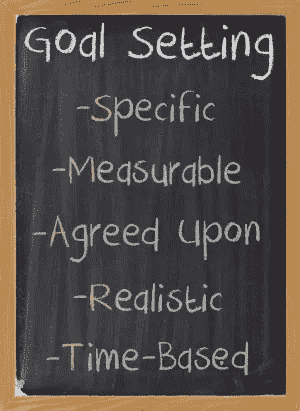 Goal Setting
-Specific
-Measurable
-Agreed Upon
-Realistic
-Time-Based